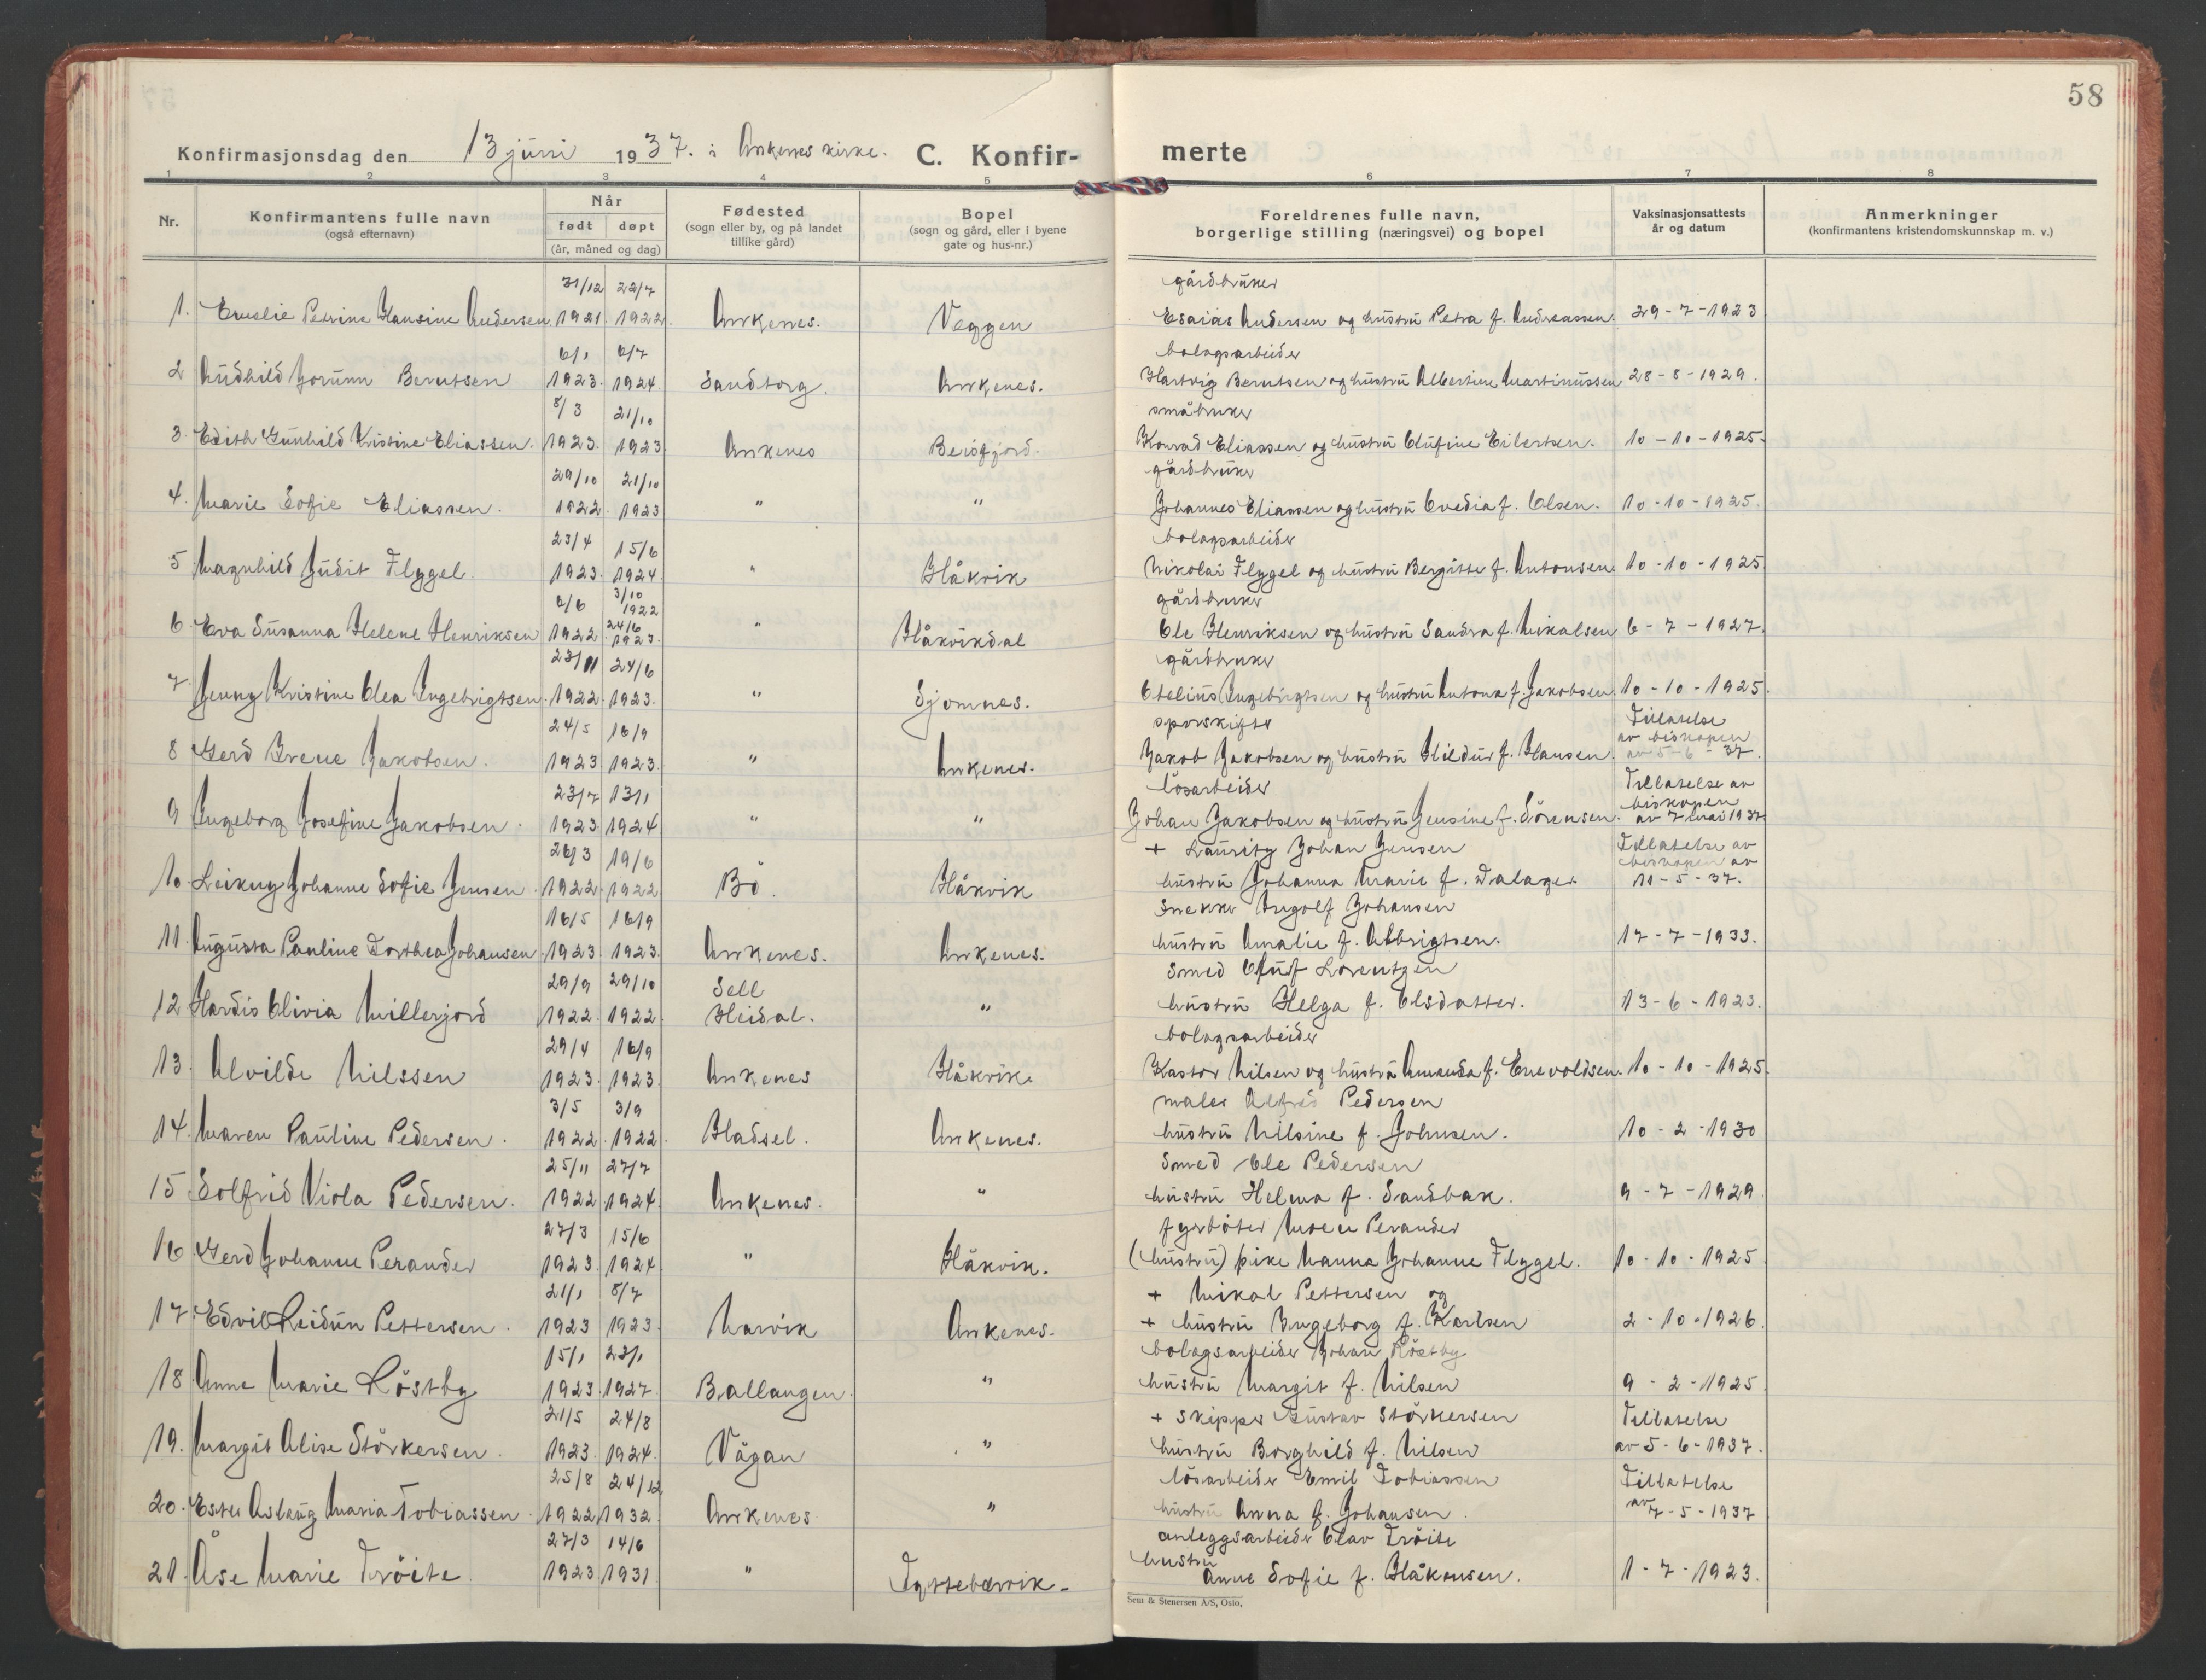 58
Konfirmasjonsdag den 13 juni 1937. i Ankenes kirke. C. Konfir- merte
1 2 3 4 5 6 7 8
Nr.
Konfirmantens fulle navn
(også efternavn)
Når
født døpt
(år, måned og dag)
Fødested
(sogn eller by, og på landet
tillike gård)
Bopel
(sogn og gård, eller i byene
gate og hus-nr.)
Foreldrenes fulle navn,
borgerlige stilling (næringsvei) og bopel
Vaksinasjonsattests
år og datum
Anmerkninger
(konfirmantens kristendomskunnskap m. v.)
31/12 22/7 gårdbruker
1. Emelie Petrine Hansine Andersen 1921. 1922. Ankenes. Veggen Esaias Andersen og hustru Petra f. Andreassen. 29-7-1923
6/1 6/7 bolagsarbeider
2 Audhild Jorunn Berntsen 1923. 1924. Sandtorg. Ankenes. Hartvig Berntsen og hustru Albertine Martinussen 28-8-1929.
8/3 21/10 småbruker
3. Edith Gunhild Kristine Eliassen. 1923. 1923 Ankenes Beisfjord. Konrad Eliassen og hustru Olufine Eilertsen. 10-10-1925.
29/10 21/10 gårdbruker
4. Marie Sofie Eliassen. 1922. 1923 " " Johannes Eliassen og hustru Ovedia f. Olsen. 10-10-1925.
23/4 15/6 bolagsarbeider
5 Magnhild Judit Flygel. 1923. 1924. " Håkvik Nikolai Flygel og hustru Bergitte f. Antonsen. 10-10-1925
6/6 3/10 1922 gårdbruker
6. Eva Susanna Helene Henriksen 1922. 24/6 1923. " Håkvikdal Ole Henriksen og hustru Sandra f. Mikalsen 6-7-1927.
23/11 24/6 gårdbruker
7. Jenny Kristine Olea Ingebrigtsen. 1922. 1923. " Sjomnes. Otelius Ingebrigtsen og hustru Antona f. Jakobsen. 10-10-1925.
24/5 16/9 sporskifter Tillatelse
8 Gerd Irene Jakobsen. 1923 1923. " Ankenes. Jakob Jakobsen og hustru Hildur f. Hansen. av biskopen av 5-6-37.
23/7 13/1 løsarbeider Tillatelse av
9 Ingeborg Josefine Jakobsen. 1923. 1924 " " Johan Jakobsen og hustru Jensine f. Sörensen. biskopen av 7 mai 1937
26/3 19/6 + Lauritz Johan Jensen Tillatelse av
10. Leikny Johanne Sofie Jensen. 1922. 1922 Bö. Håkvik hustru Johanna Marie f. Dalager. biskopen av 11-5-37.
16/5 16/9 Snekker Ingolf Johansen
11. Augusta Pauline Dorthea Johansen. 1923. 1923. Ankenes. Ankenes. hustru Amalie f. Albrigtsen. 17-7-1933.
29/9 29/10 Sell Smed Oluf Lorentzen
12 Hardis Olivia Millerjord 1922. 1922. Heidal. " hustru Helga f. Olsdatter. 13-6-1923.
29/4 16/9 bolagsarbeider
13. Alvilde Nilssen 1923. 1923. Ankenes Håkvik. Kastor Nilsen og hustru Amanda f. Enevoldsen. 10-10-1925.
3/5 3/9 maler Alfred Pedersen
14. Maren Pauline Pedersen. 1922. 1922. Hadsel. Ankenes. hustru Nilsine f. Johnsen. 10-2-1930
25/11 27/7 Smed Ole Pedersen
15 Solfrid Viola Pedersen. 1922 1924. Ankenes. " hustru Helma f. Sandbak. 9-7-1929.
27/3 15/6 fyrböter Moen Perander
16 Gerd Johanne Perander 1923. 1924 " Håkvik. (hustru) pike Nanna Johanne Flygel. 10-10-1925
21/1 8/7 + Mikal Pettersen og
17. Edvil Reidun Pettersen. 1923 1923. Narvik Ankenes. + hustru Ingeborg f. Karlsen 2-10-1926.
15/1 23/1 bolagsarbeider Johan Röstby
18. Anne Marie Röstby 1923. 1927. Ballangen. " hustru Margit f. Nilsen 9-2-1925
21/5 24/8 + skipper Gustav Störkersen Tillatelse
19. Margit Alise Störkersen. 1923. 1924. Vågan " hustru Borghild f. Nilsen av 5-6-1937.
25/8 24/12 lösarbeider Emil Tobiassen Tillatelse
20. Ester Aslaug Maria Tobiassen. 1922. 1932. Ankenes " hustru Anna f. Johansen. av 7-5-1937
27/3 14/6 anleggsarbeider Olav Tröite
21. Åse Marie Tröite. 1923. 1931. " Tyttebærvik. hustru Anne Sofie f. Håkonsen. 1-7-1923.
Sem & Stenersen A/S, Oslo.